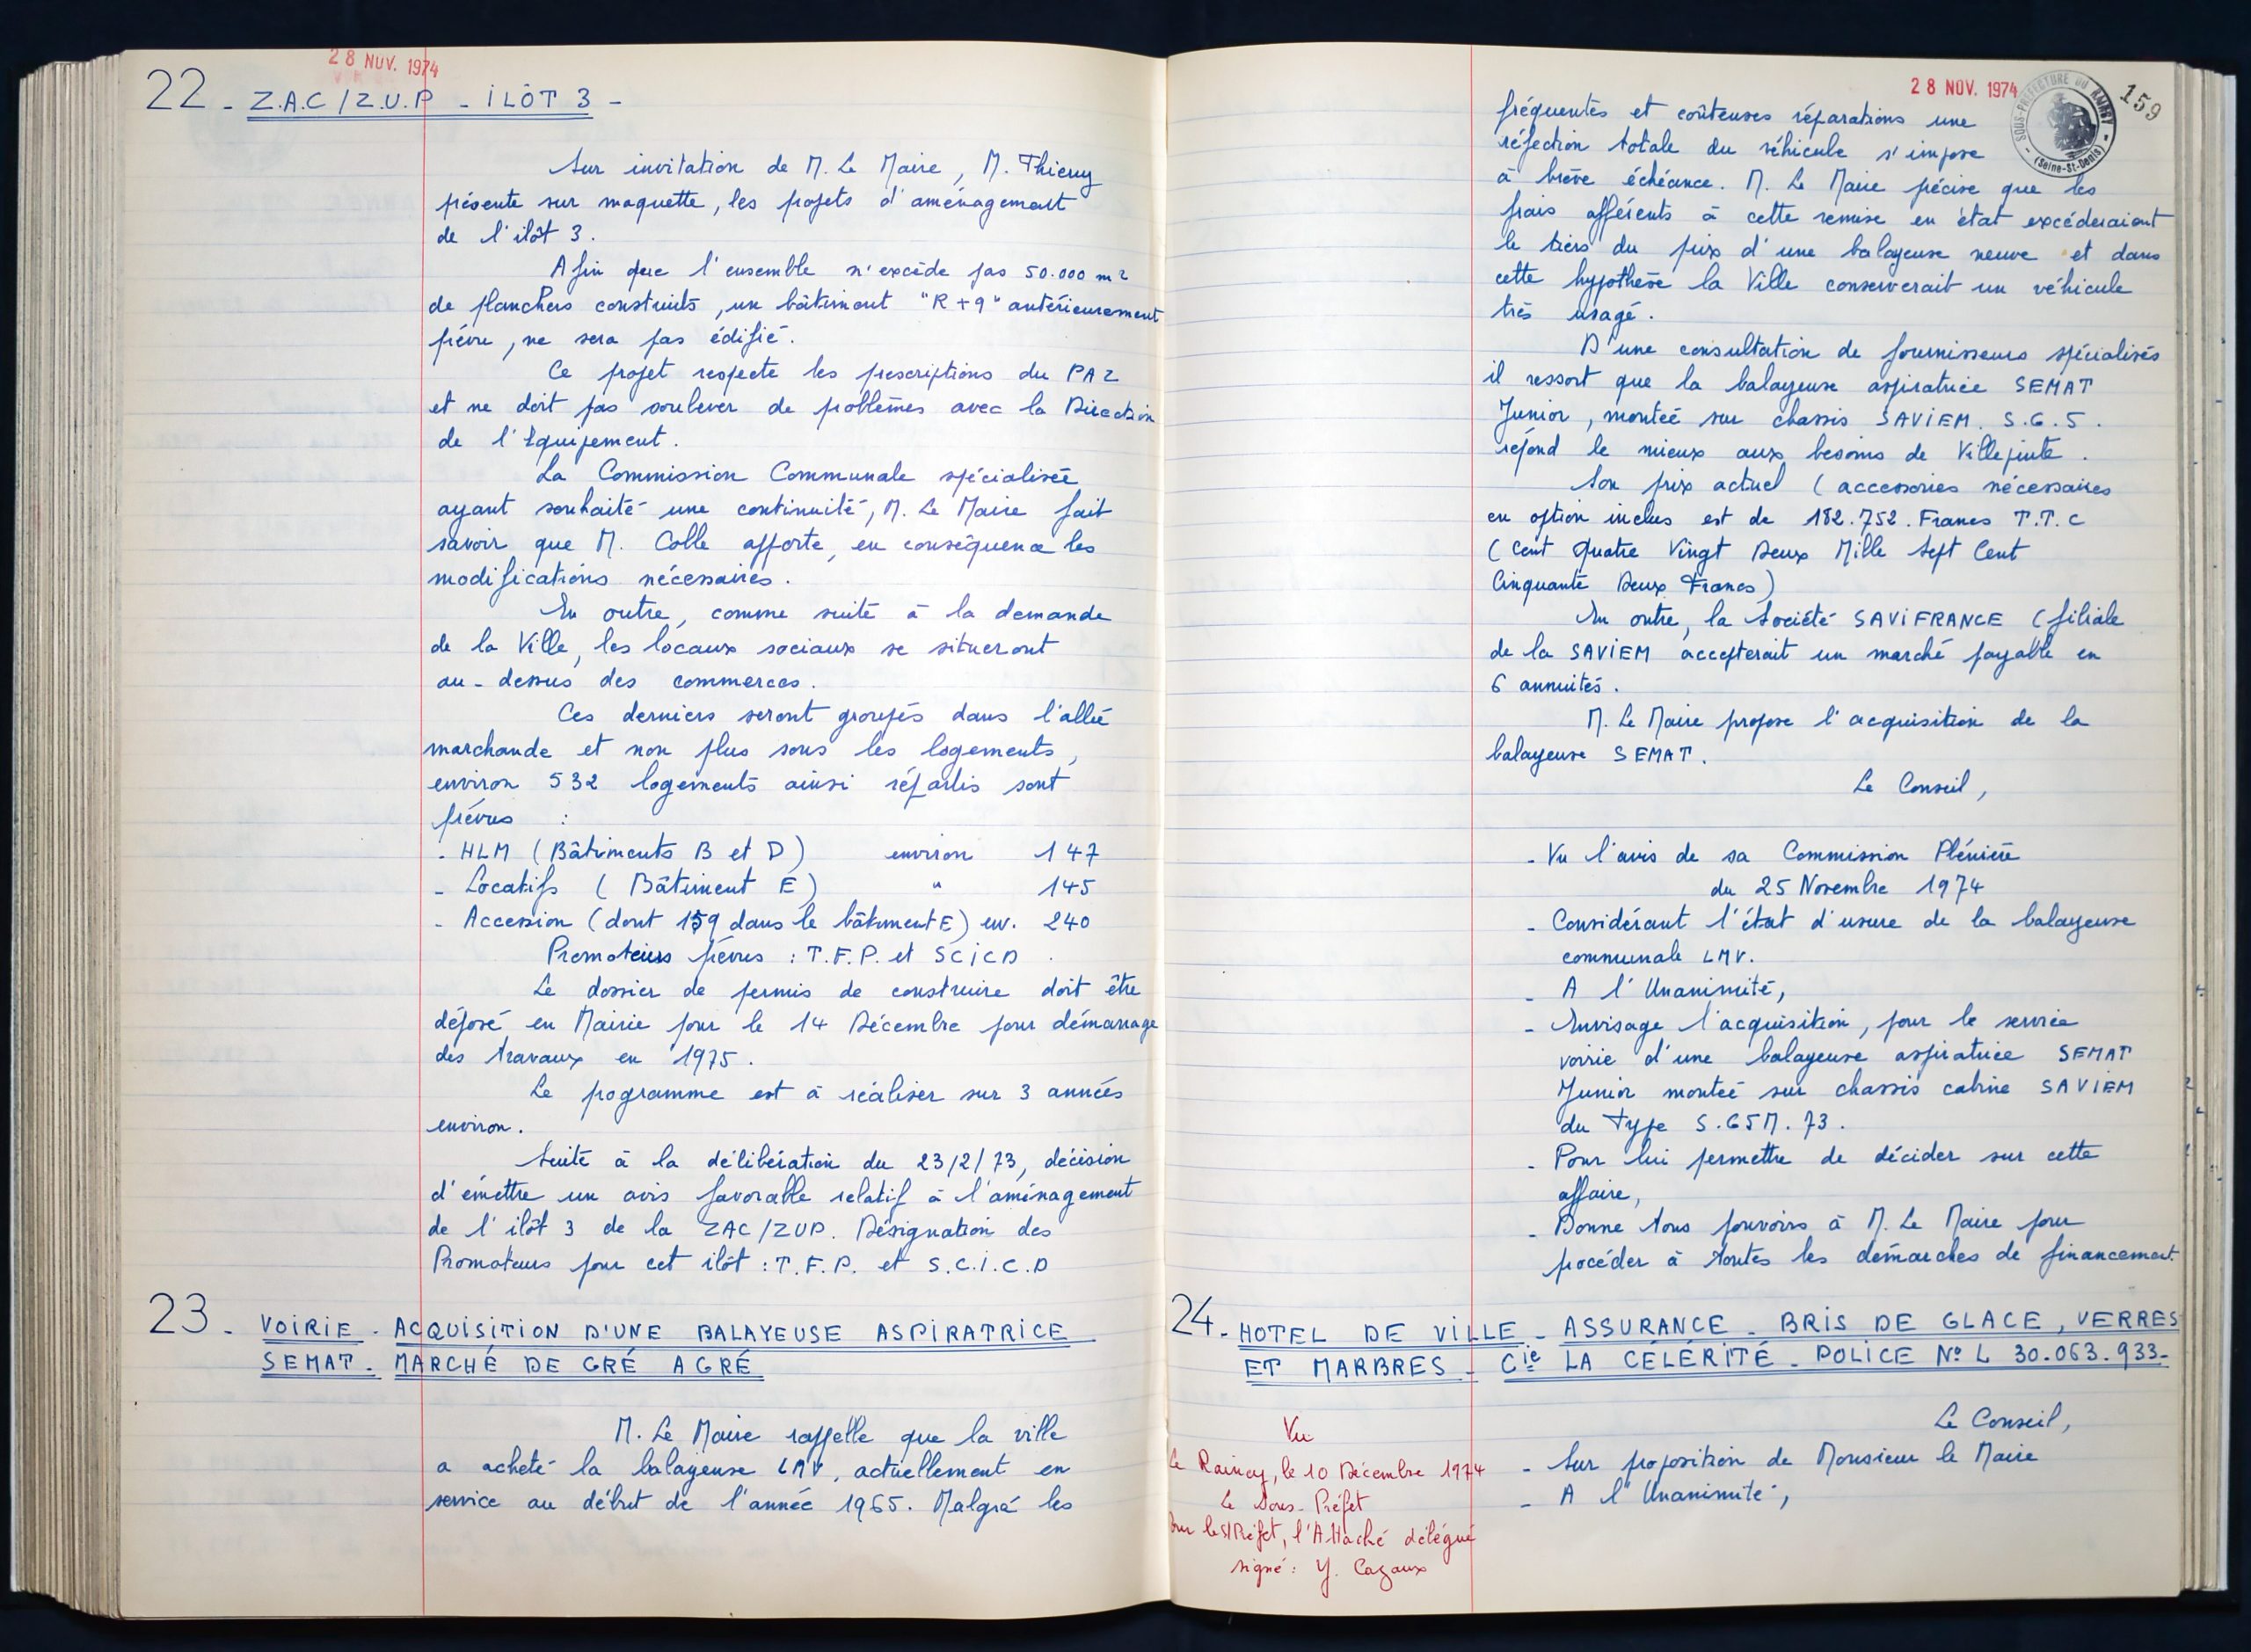 28 NOV. 1974
22 - Z.A.C / Z.U.P - ILÔT 3 -
Sur invitation de M. Le Maire, M. Thierry
présente sur maquette, les projets d'aménagement
de l'ilôt 3.
Afin que l'ensemble n'excède pas 50.000 m2
de planchers construits, un bâtiment "R + 9" antérieurement
prévu, ne sera pas édifié.
Ce projet respecte les prescriptions du PAZ
et ne doit pas soulever de problèmes avec la Direction
de l'Equipement.
La Commission Communale spécialisée
ayant souhaité une continuité, M. Le Maire fait
savoir que M. Colle apporte, en conséquence les
modifications nécessaires.
En outre, comme suite à la demande
de la Ville, les locaux sociaux se situeront
au-dessus des commerces.
Ces derniers seront groupés dans l'allée
marchande et non plus sous les logements,
environ 532 logements ainsi répartis sont
prévus :
- HLM (Bâtiments B et D) environ 147
- Locatifs (Bâtiment E) " 145
- Accession (dont 159 dans le bâtiment E) env. 240
Promoteurs prévus : T.F.P. et SCICD.
Le dossier de permis de construire doit être
déposé en Mairie pour le 14 Décembre pour démarrage
des travaux en 1975.
Le programme est à réaliser sur 3 années
environ.
Suite à la délibération du 23/2/73, décision
d'émettre un avis favorable relatif à l'aménagement
de l'ilôt 3 de la ZAC/ZUP. Désignation des
Promoteurs pour cet ilôt : T.F.P. et S.C.I.C.D
23 - VOIRIE - ACQUISITION D'UNE BALAYEUSE ASPIRATRICE
SEMAT - MARCHÉ DE GRÉ A GRÉ
M. Le Maire rappelle que la ville
a acheté la balayeuse LMV, actuellement en
service au début de l'année 1965. Malgré les
28 NOV. 1974
159
SOUS-PRÉFECTURE DU RAINCY
(Seine-St-Denis)
fréquentes et coûteuses réparations une
réfection totale du véhicule s'impose
à brève échéance. M. Le Maire précise que les
frais afférents à cette remise en état excéderaient
le tiers du prix d'une balayeuse neuve et dans
cette hypothèse la Ville conserverait un véhicule
très usagé.
D'une consultation de fournisseurs spécialisés
il ressort que la balayeuse aspiratrice SEMAT
Junior, montée sur chassis SAVIEM. S.G.5.
répond le mieux aux besoins de Villepinte.
Son prix actuel (accessoires nécessaires
en option inclus est de 182.752. Francs T.T.C
(Cent Quatre Vingt Deux Mille Sept Cent
Cinquante Deux Francs)
En outre, la Société SAVIFRANCE (filiale
de la SAVIEM accepterait un marché payable en
6 annuités.
M. Le Maire propose l'acquisition de la
balayeuse SEMAT.
Le Conseil,
- Vu l'avis de sa Commission Plénière
du 25 Novembre 1974
- Considérant l'état d'usure de la balayeuse
communale LMV.
- A l'Unanimité,
- Envisage l'acquisition, pour le service
voirie d'une balayeuse aspiratrice SEMAT
Junior montée sur chassis cabine SAVIEM
du Type S.G5M.73.
- Pour lui permettre de décider sur cette
affaire,
- Donne tous pouvoirs à M. Le Maire pour
procéder à toutes les démarches de financement.
24 - HOTEL DE VILLE - ASSURANCE - BRIS DE GLACE, VERRES
ET MARBRES - Cie LA CÉLÉRITÉ - POLICE N° L 30.063.933-
Le Conseil,
- Sur proposition de Monsieur le Maire
- A l'Unanimité,
Vu
Le Raincy, le 10 Décembre 1974
Le Sous-Préfet
Pour le S/Préfet, l'Attaché délégué
signé : Y. Cazaux